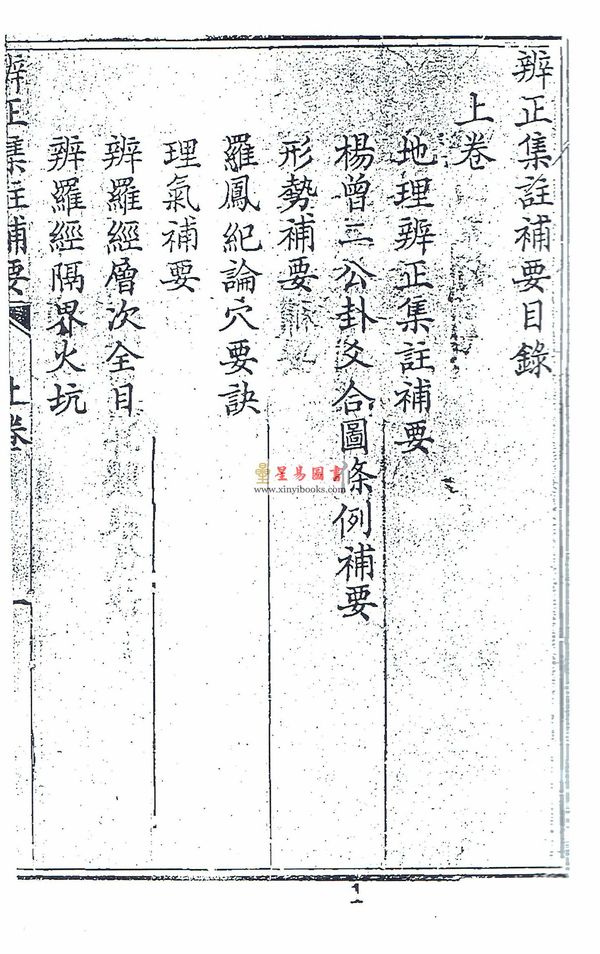 辨正集註補要目錄
上卷
地理辨正集註補要
楊曾三公卦爻合圖条例補要
形勢補要
羅鳳紀論穴要訣
理氣補要
辨羅經層次全目
辨羅經隔界火坑
辨正集註補要
上卷
星易圖書
www.xinyibooks.com
1